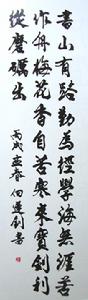 書山有路勤為徑學海無涯苦
作舟梅花香自苦寒來寶劍利
從磨礪出
丙戌並書伯運釗書